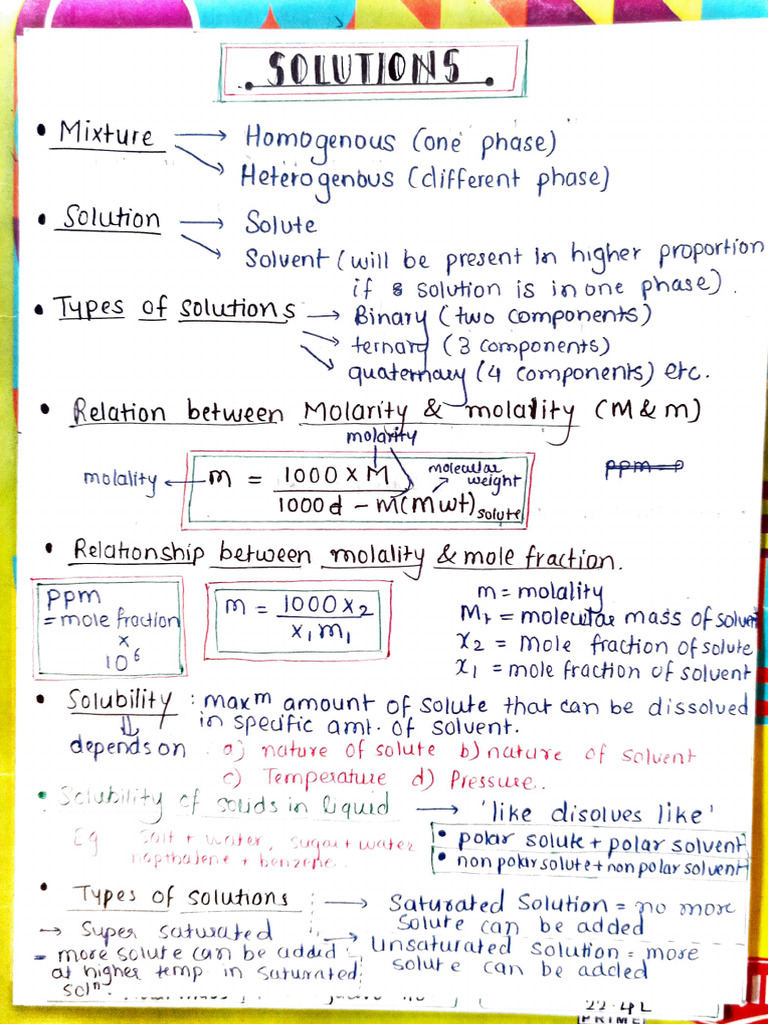 . SOLUTIONS .
• Mixture → Homogenous (one phase)
→ Heterogenous (different phase)
• Solution → Solute
→ Solvent (will be present in higher proportion
if solution is in one phase).
• Types of solutions → Binary (two components)
→ ternary (3 components)
→ quaternary (4 components) etc.
• Relation between Molarity & molality (M & m)
molarity
molality ← m = 1000 × M / 1000 d - M(Mwt)solute
molecular weight
ppm = p
• Relationship between molality & mole fraction.
ppm
= mole fraction
×
10⁶
m = 1000 x₂ / x₁ m₁
m = molality
M₁ = molecular mass of solvent
x₂ = mole fraction of solute
x₁ = mole fraction of solvent
• Solubility : maxᵐ amount of solute that can be dissolved
in specific amt. of solvent.
⇓
depends on a) nature of solute b) nature of solvent
c) Temperature d) Pressure.
• Solubility of solids in liquid → 'like disolves like'
Eg salt + water, sugar + water
napthalene + benzene.
• polar solute + polar solvent
• non polar solute + non polar solvent
• Types of solutions → Saturated Solution = no more
solute can be added
→ Unsaturated solution = more
solute can be added
→ Super saturated
= more solute can be added
at higher temp in saturated
solⁿ.
22.4L
PRIME